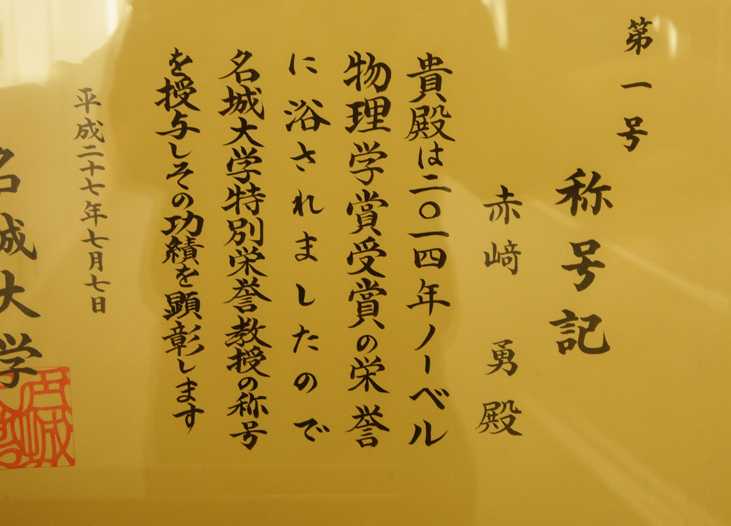 第一号
称号記
赤﨑勇殿
貴殿は二〇一四年ノーベル
物理学賞受賞の栄誉
に浴されましたので
名城大学特別栄誉教授の称号
を授与しその功績を顕彰します
平成二十七年七月七日
名城大学